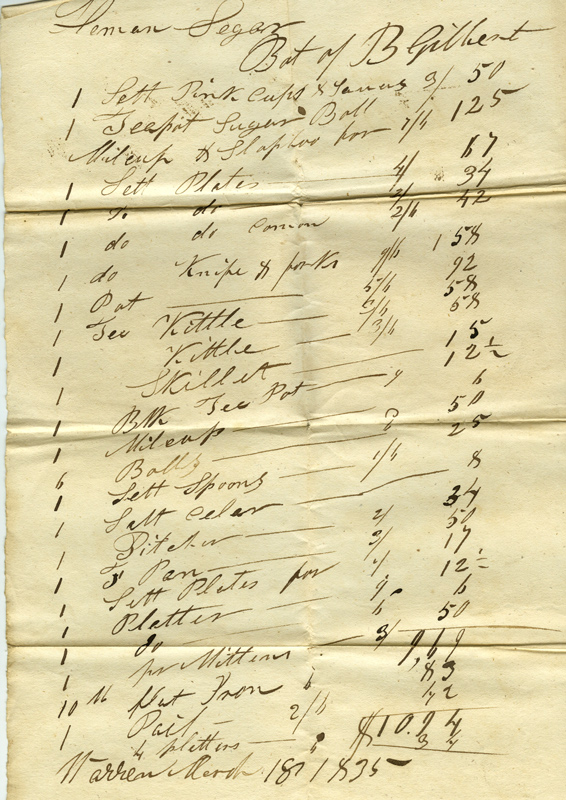 Heman Segar
Bot of B Gilbert
1 Sett Pink Cups & Sauus 3/ 50
1 Teapot Sugar Boll
Milcup & Slapboo for 7/6 1 25
1 Sett Plates 4/ 67
1 do 2/ 34
1 do do comon 2/6 42
1 do Knife & forks 9/6 1 58
1 Pot 5/6 92
1 Tee Kittle 3/6 58
1 Kittle 3/6 58
1 Skillet 15
1 Blk Tee Pot 9 12½
1 Milcup 6
6 Bolls 8 50
1 Sett Spoons 1/6 25
1 Salt Celar 8
1 Pitcher 2/ 34
1 Pan 3/ 50
1 Sett Plates for 1/ 17
1 Platter 9 12½
1 do 6 6
1 pr Mittens 3/ 50
9,69
10 lb flat Iron 83
1 Pail 2/6 42
$10.94
4 platters 34
Warren March 18th 1835